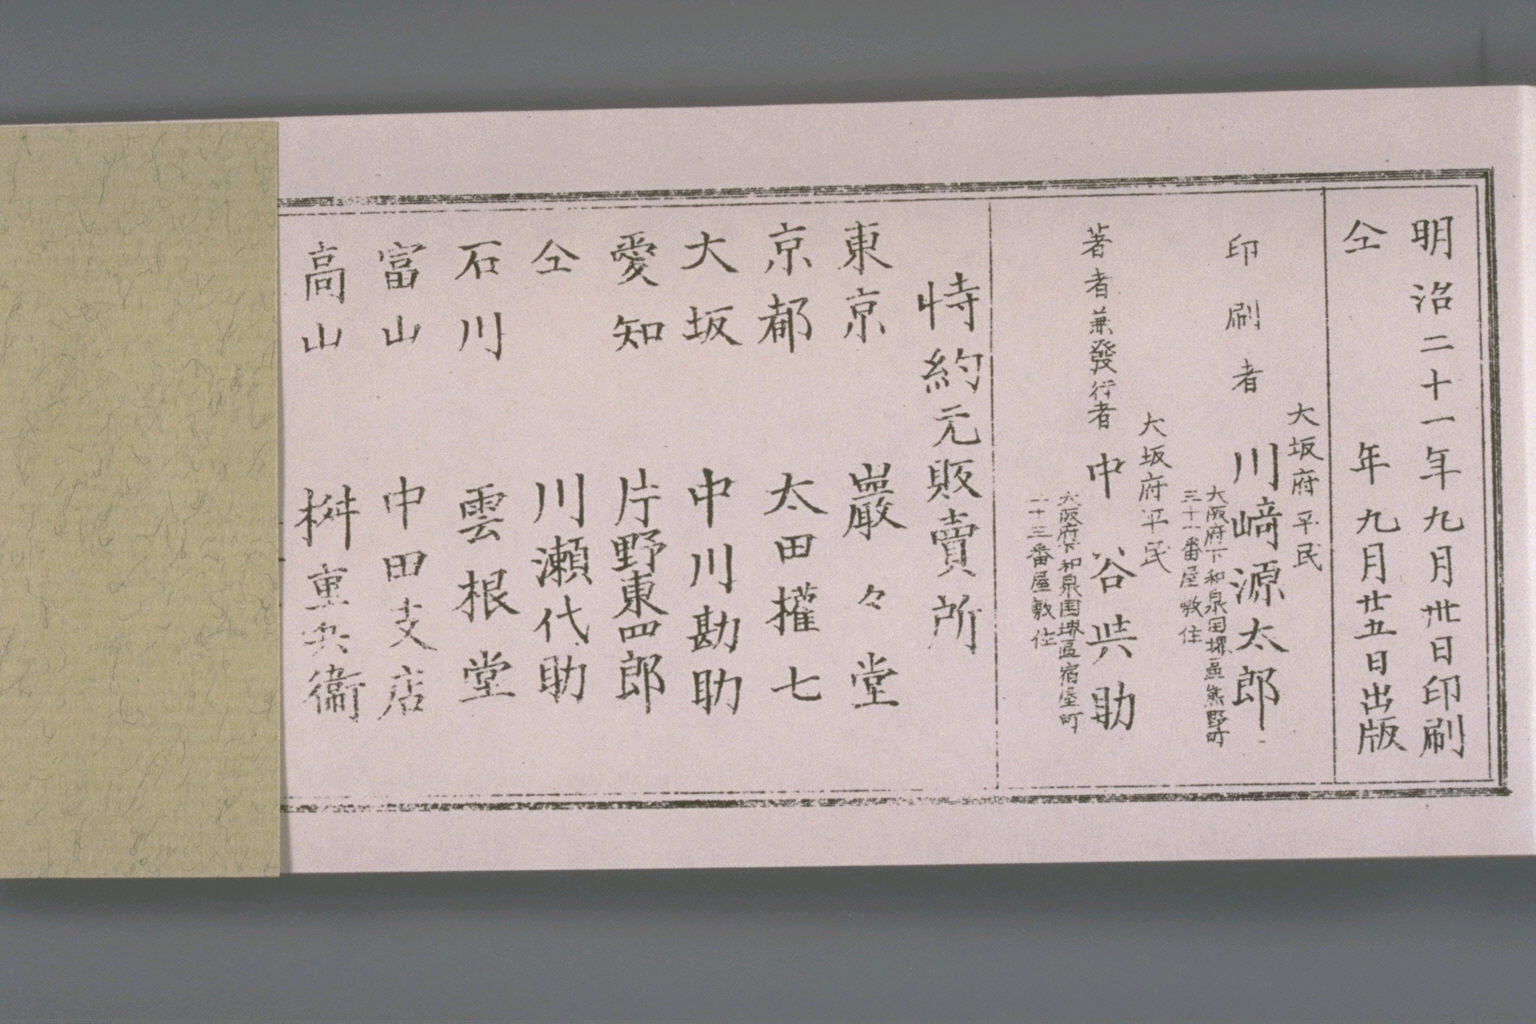 明治二十一年九月卅日印刷
仝年九月廿五日出版
大坂府平民
印刷者 川﨑源太郎
大阪府下和泉国堺區熊野町
三十一番屋敷住
大坂府平民
著者兼發行者 中谷與助
大阪府下和泉国堺區宿屋町
二十三番屋敷住
特約元販賣所
東京 巖々堂
京都 太田權七
大坂 中川勘助
愛知 片野東四郎
仝 川瀬代助
石川 雲根堂
富山 中田支店
高山 桝重兵衞